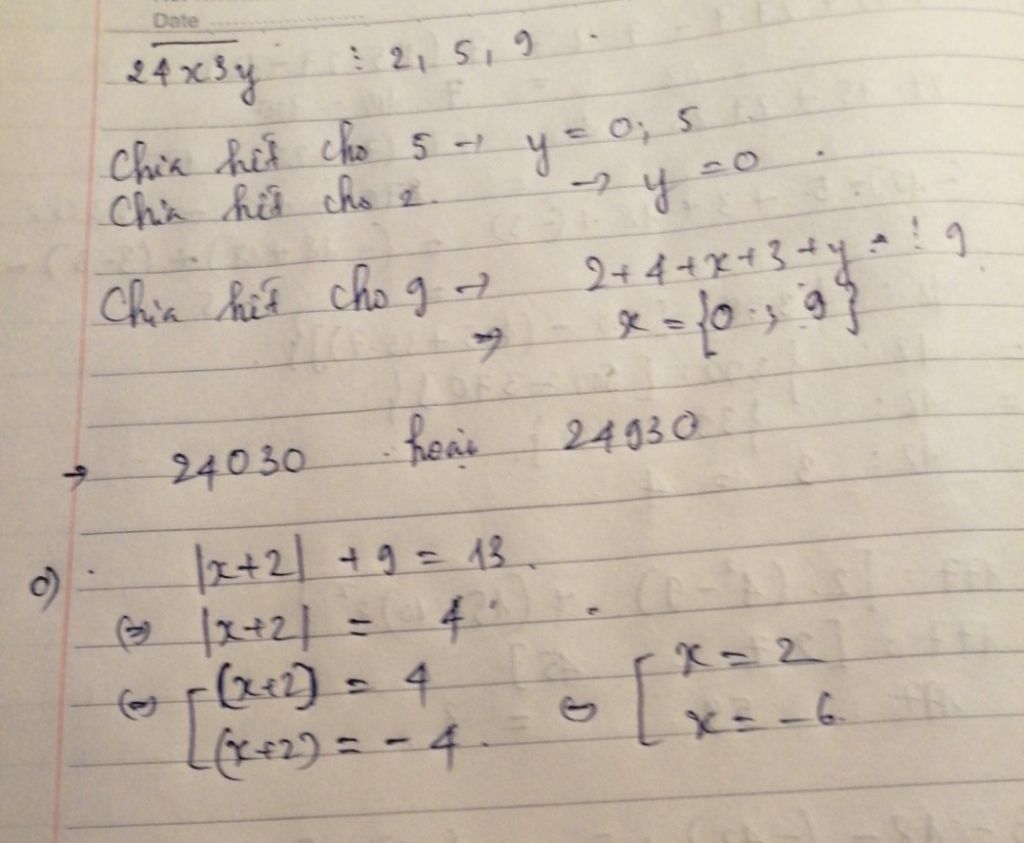 Date
24x3y ⋮ 2, 5, 9
Chia hết cho 5 → y = 0; 5
Chia hết cho 2. → y = 0
Chia hết cho 9 → 2+4+x+3+y ⋮ 9
⇒ x = {0 ; 9}
→ 24030 hoặc 24930
c) |x+2| + 9 = 13.
⇔ |x+2| = 4
⇔ [(x+2) = 4 ⇔ [x = 2
(x+2) = -4. x = -6